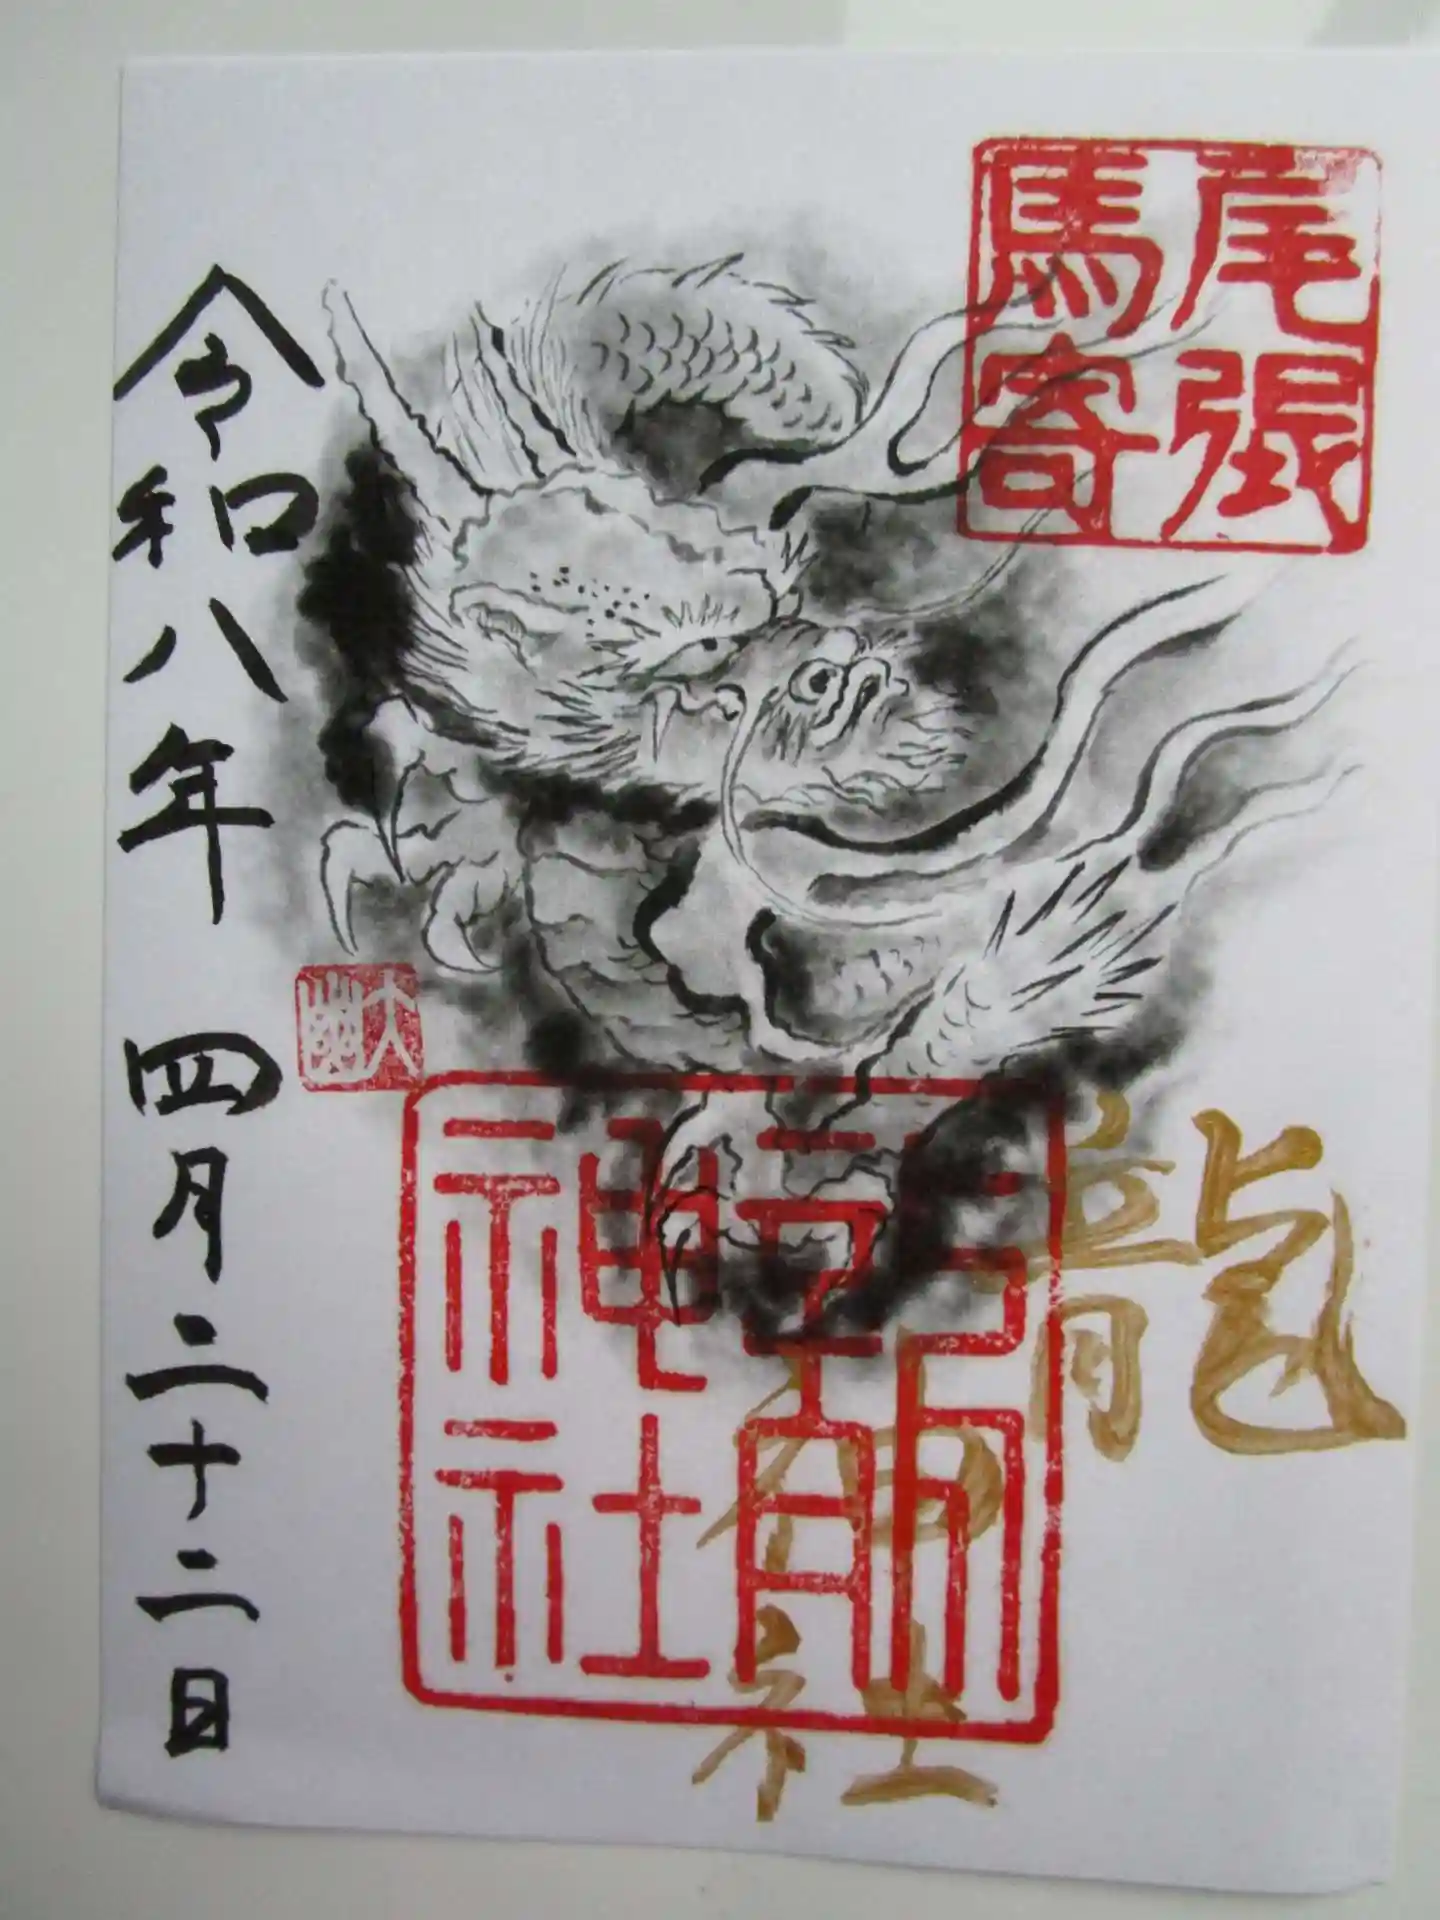 尾張
馬寄
龍
神社
龍
神社
令和八年 四月二十二日